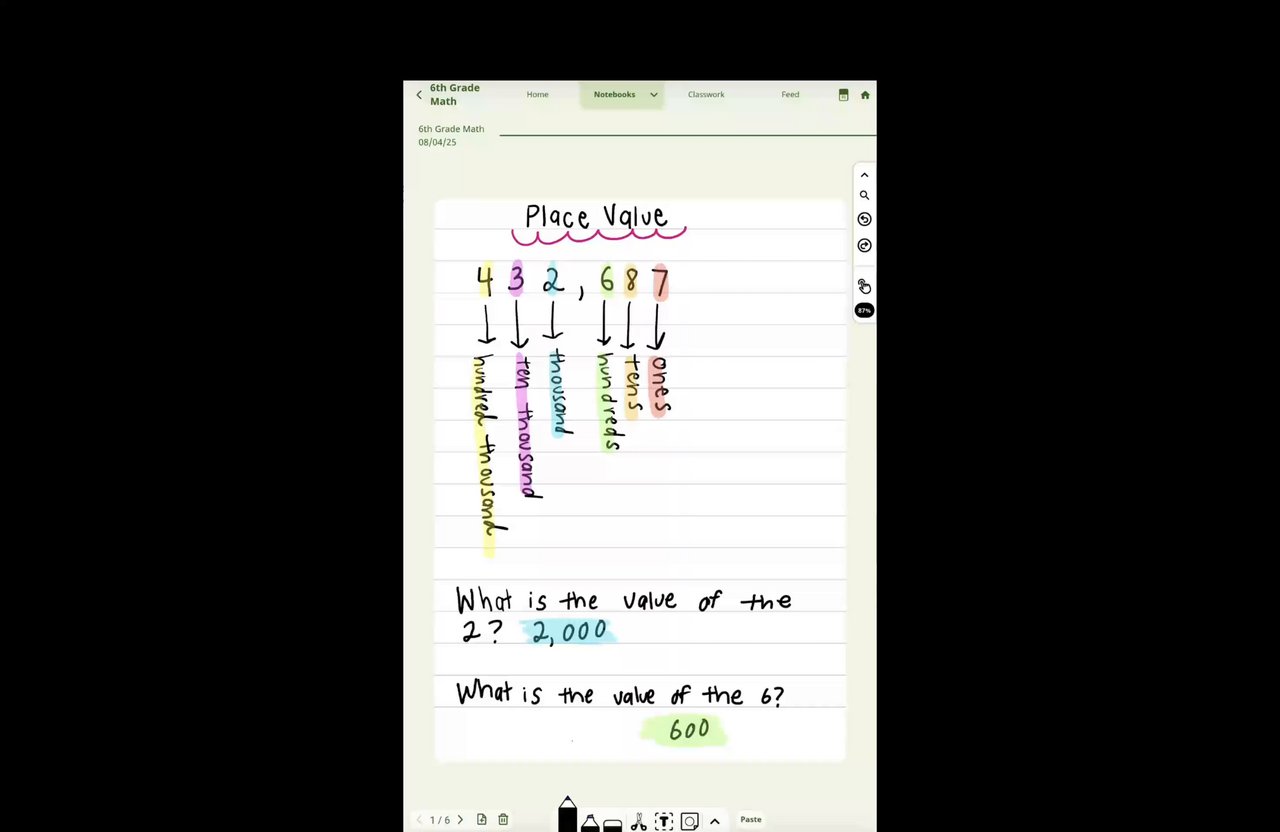 6th Grade
Math
Home
Notebooks
Classwork
Feed
6th Grade Math
08/04/25
Place Value
4 3 2 , 6 8 7
hundred thousand
ten thousand
thousand
hundreds
tens
ones
What is the value of the
2? 2,000
What is the value of the 6?
600
87%
1/6
T
Paste